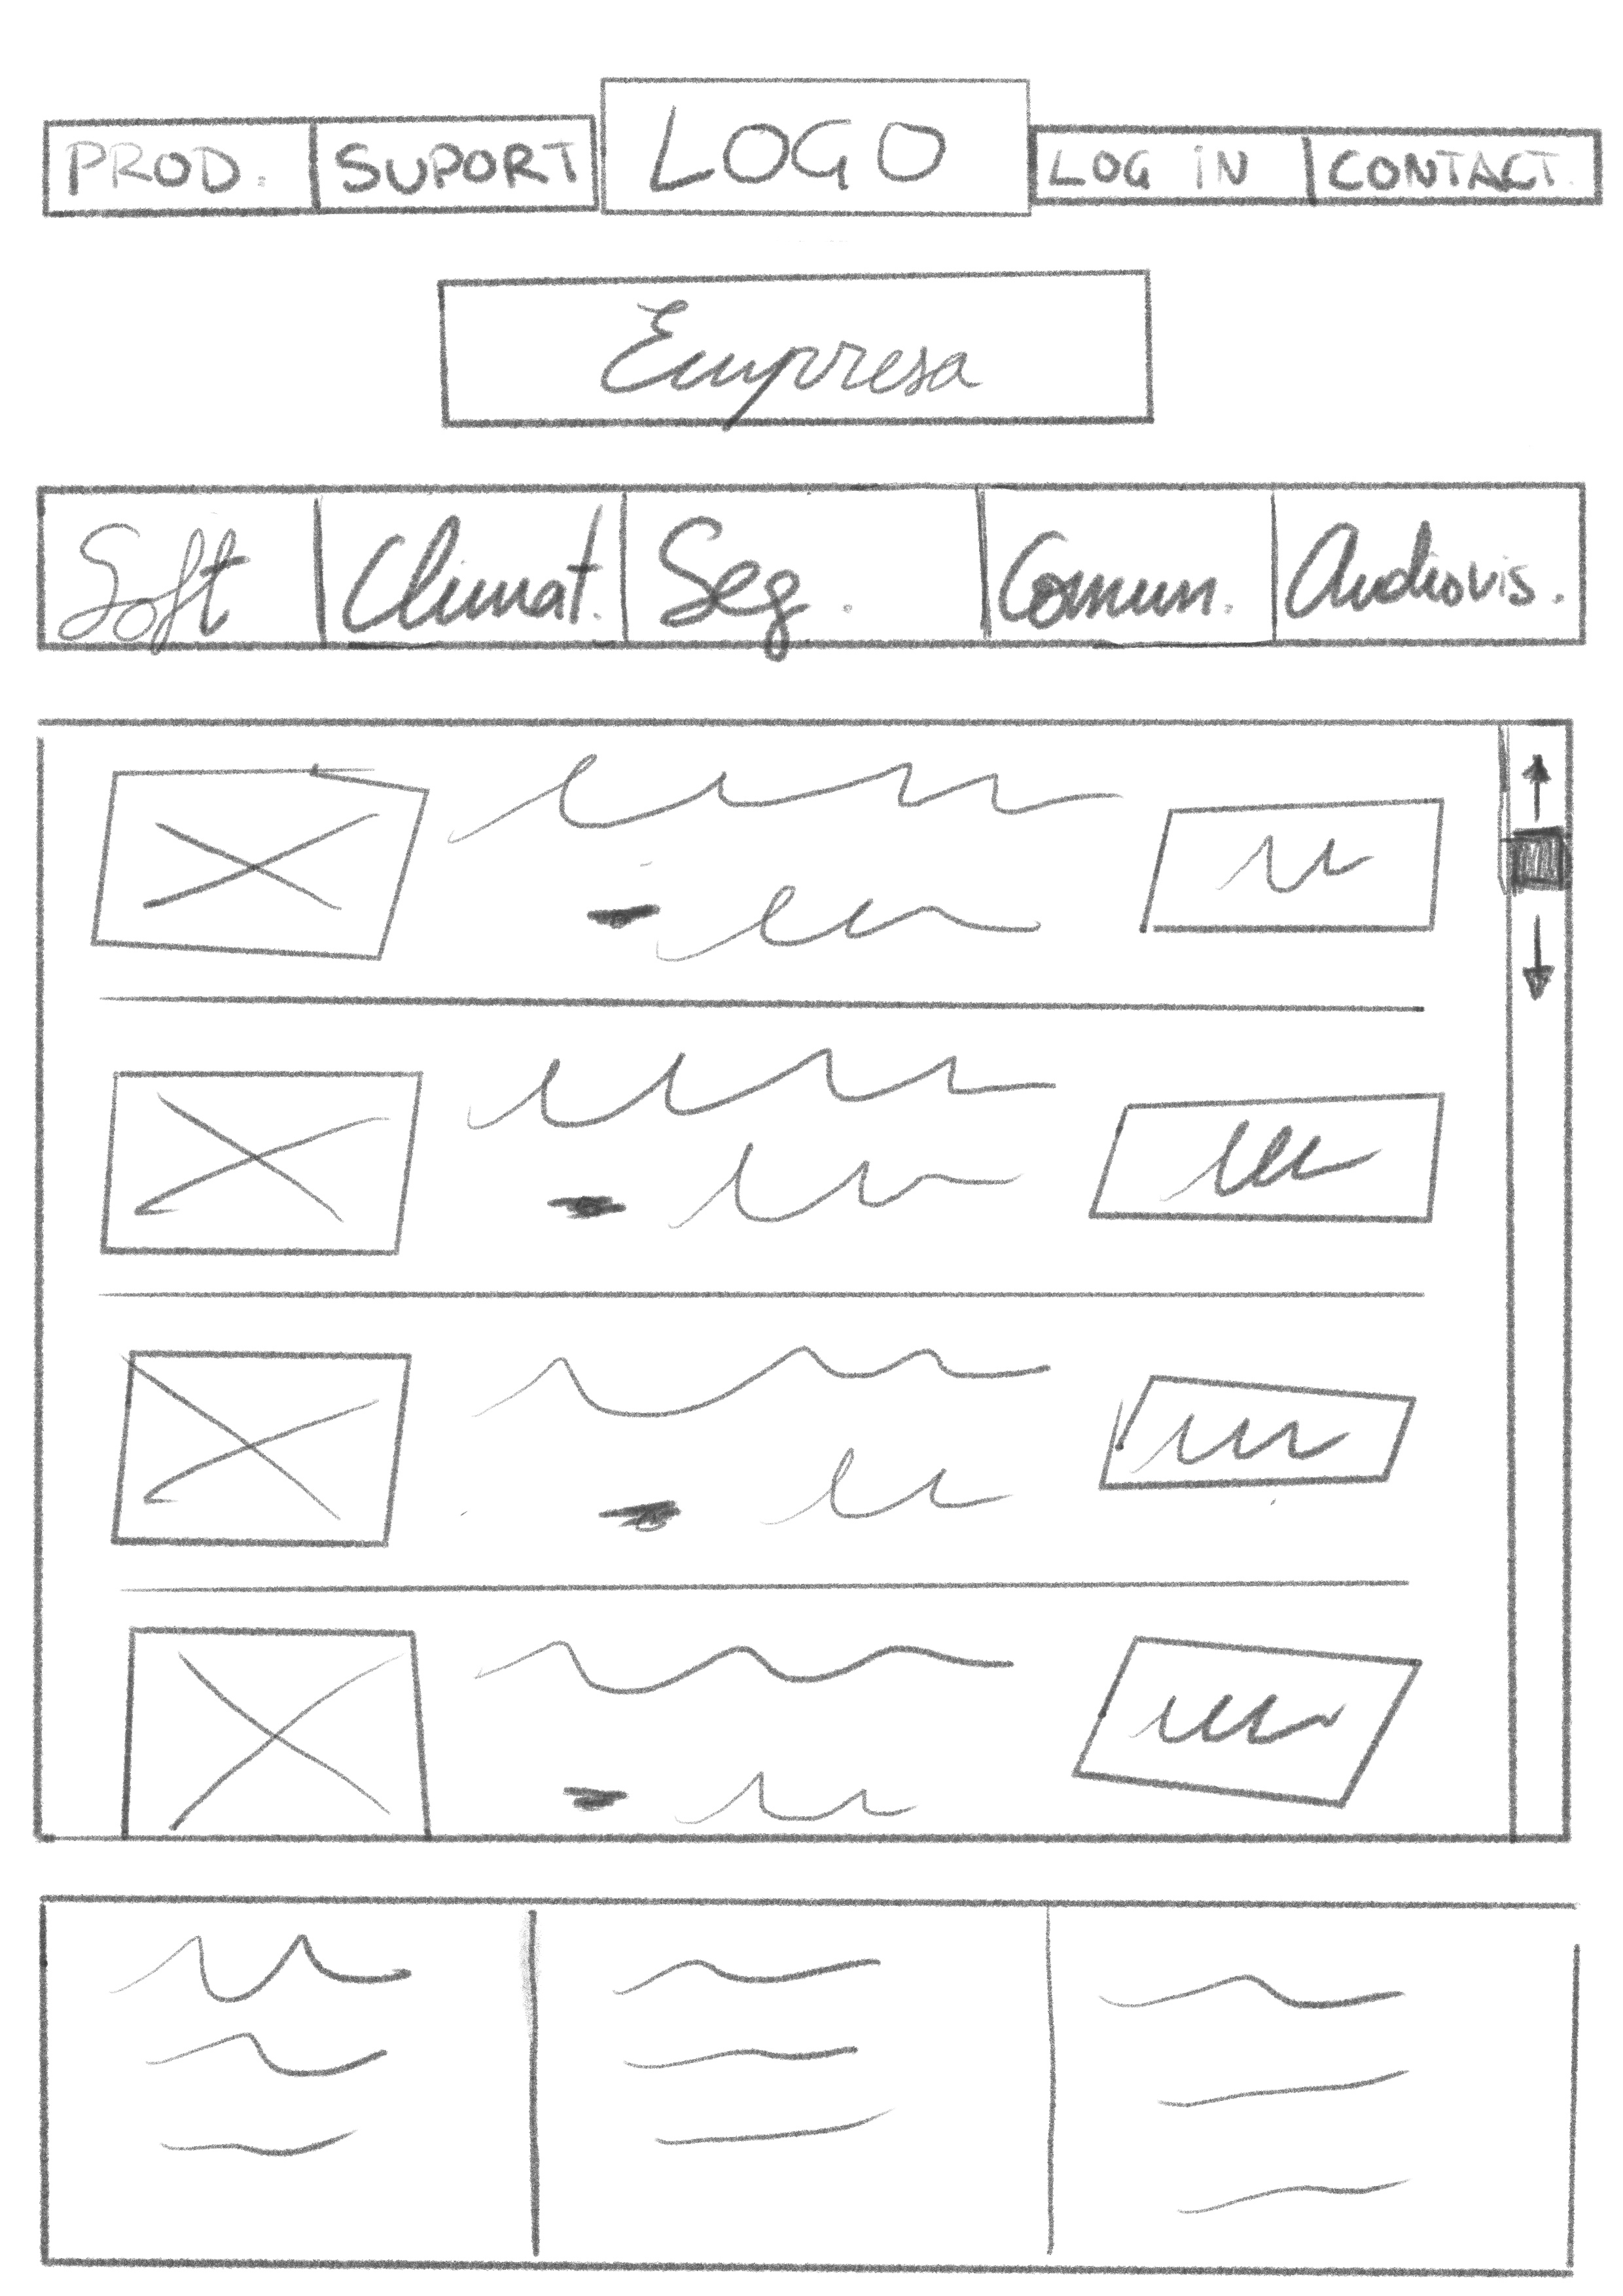 PROD. SUPORT LOGO LOG IN CONTACT.
Empresa
Soft Climat. Seg. Comun. Audiovis.